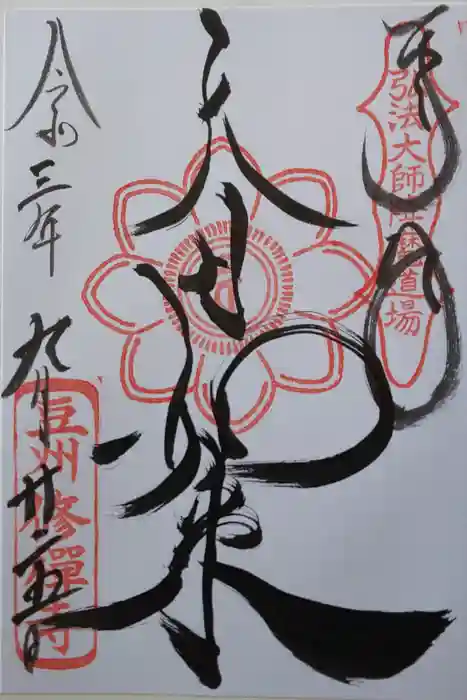 奉拝
弘法大師降魔道場
大日如来
令和三年九月廿五日
豆州修禪寺